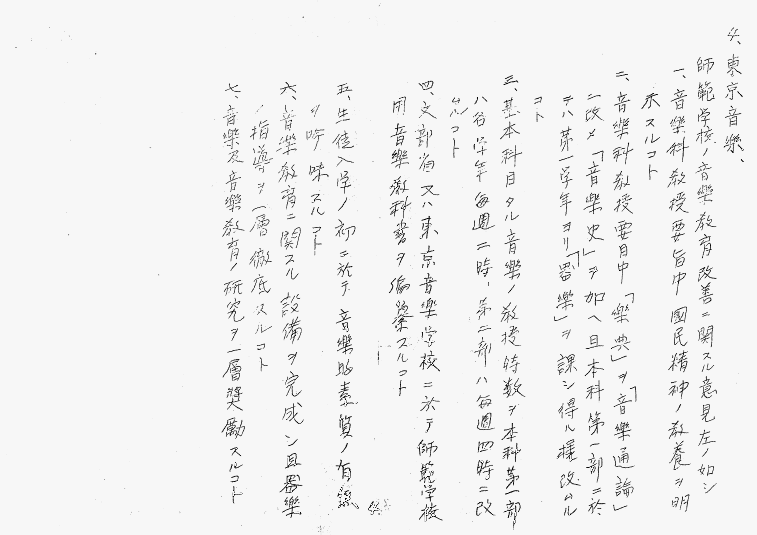 4、東京音樂、
師範学校ノ音樂教育改善ニ関スル意見左ノ如シ
一、音樂科教授要旨中國民精神ノ教養ヲ明
示スルコト
二、音樂科教授要目中「樂典」ヲ「音樂通論」
ニ改メ「音樂史」ヲ加ヘ且本科第一部ニ於
テハ第一学年ヨリ「器樂」ヲ課シ得ル様改ムル
コト
三、基本科目タル音樂ノ教授時数ヲ本科第一部
ハ各学年毎週二時、第二部ハ毎週四時ニ改
ムルコト
四、文部省又ハ東京音樂学校ニ於テ師範学校
用音樂教科書ヲ編纂スルコト
五、生徒入学ノ初ニ於テ音樂的素質ノ有無
ヲ吟味スルコト
六、音樂教育ニ関スル設備ヲ完成シ且器樂
ノ指導ヲ一層徹底スルコト
七、音樂及音樂教育ノ研究ヲ一層奨勵スルコト